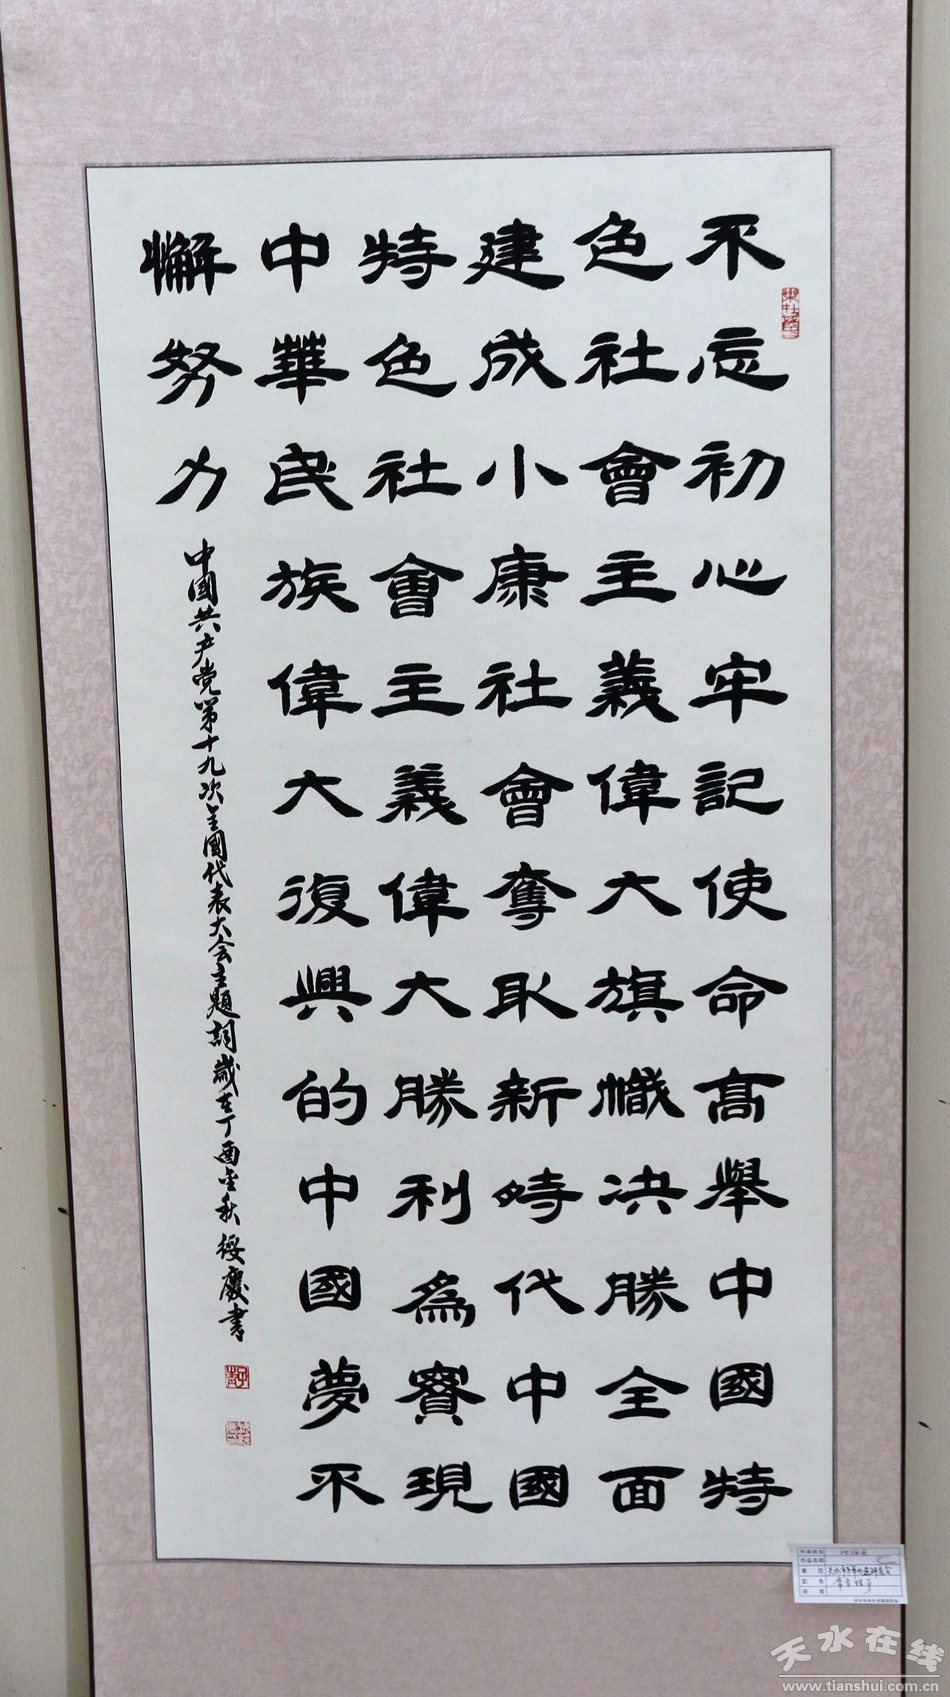 不忘初心牢记使命高舉中國特
色社會主義偉大旗幟决勝全面
建成小康社會奪取新時代中國
特色社會主義偉大勝利為實現
中華民族偉大復興的中國夢不
懈努力
中國共产党第十九次全國代表大会主題詞歲在丁酉金秋绥慶書
天水在线
www.tianshui.com.cn